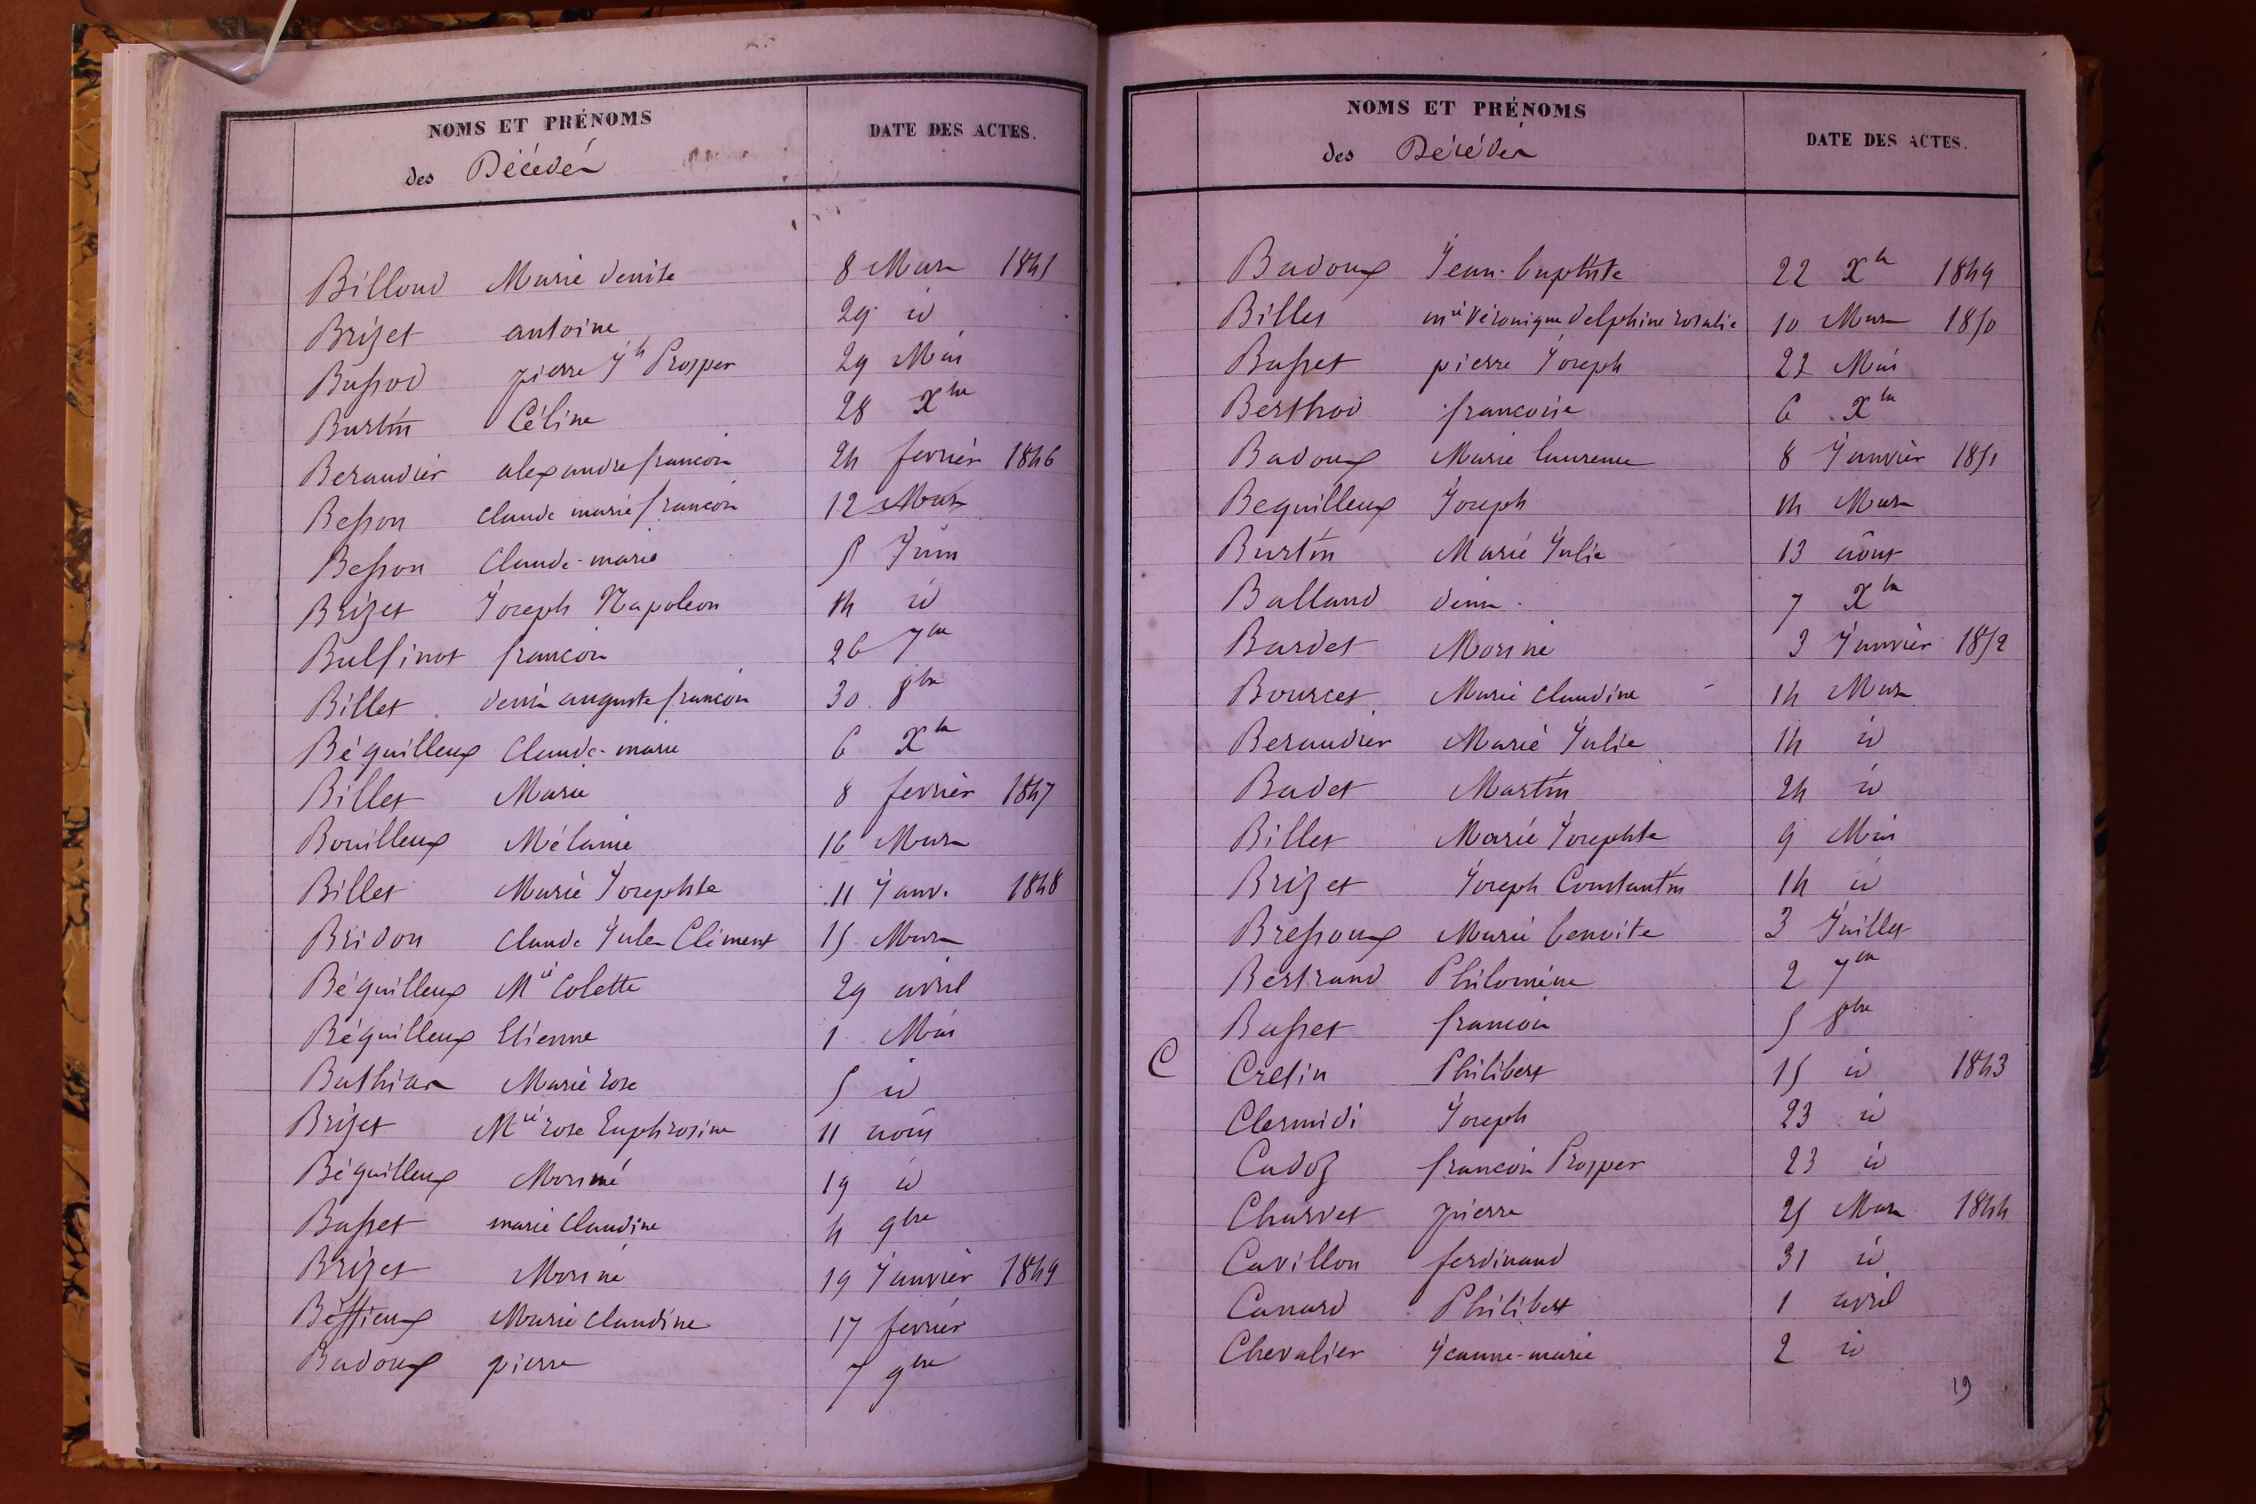 NOMS ET PRÉNOMS DATE DES ACTES.
des Décédés
Billoud Marie denise 8 Mars 1845
Brizet antoine 29 id
Bussod pierre Jh Prosper 29 Mai
Burtin Céline 28 Xbre
Beraudier alexandre francois 24 fevrier 1846
Besson claude marie francois 12 Mars
Besson Claude-marie 5 Juin
Brizet Joseph Napoleon 14 id
Bulfinot francois 26 7bre
Billet denis auguste francois 30 8bre
Béquilleux Claude-marie 6 Xbre
Billet Marie 8 fevrier 1847
Bouilleux Mélanie 16 Mars
Billet Marie Josephte 11 Janv. 1848
Bridon Claude Jules Clément 15 Mars
Béquilleux Mie Colette 29 avril
Béquilleux Etienne 1 Mai
Bathias Marie rose 5 id
Brizet Mie rose Euphrosine 11 août
Béquilleux Mort né 19 id
Basset marie Claudine 4 9bre
Brizet Mort né 19 Janvier 1849
Béssieux Marie Claudine 17 fevrier
Badoux pierre 7 9bre
NOMS ET PRÉNOMS DATE DES ACTES.
des Décédés
Badoux Jean-baptiste 22 Xbre 1849
Billet mie Véronique delphine rosalie 10 Mars 1850
Basset pierre Joseph 22 Mai
Berthod francoise 6 Xbre
Badoux Marie laurence 8 Janvier 1851
Bequilleux Joseph 14 Mars
Burtin Marie Julie 13 août
Balland denis 7 Xbre
Bardet Mort né 3 Janvier 1852
Bourcet Marie claudine 14 Mars
Beraudier Marie Julie 14 id
Badet Martin 24 id
Billet Marie Josephte 9 Mai
Brizet Joseph Constantin 14 id
Bressoux Marie benoite 3 Juillet
Bertrand Philomène 2 7bre
Basset francois 5 8bre
C Cretin Philibert 15 id 1843
Clermidi Joseph 23 id
Cadoz francois Prosper 23 id
Charvet pierre 25 Mars 1844
Cavillon ferdinand 31 id
Canard Philibert 1 avril
Chevalier Jeanne-marie 2 id
19